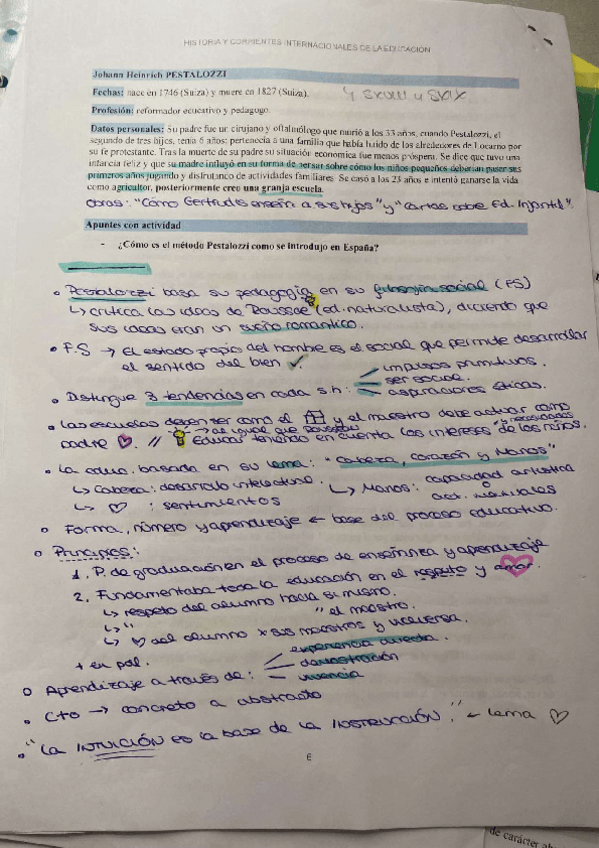 HISTORIA Y CORRIENTES INTERNACIONALES DE LA EDUCACIÓN
Johann Heinrich PESTALOZZI
Fechas: nace en 1746 (Suiza) y muere en 1827 (Suiza).
Profesión: reformador educativo y pedagogo.
Datos personales: Su padre fue un cirujano y oftalmólogo que murió a los 33 años, cuando Pestalozzi, el
segundo de tres hijos, tenía 6 años; pertenecía a una familia que había huido de los alrededores de Locarno por
su fe protestante. Tras la muerte de su padre su situación económica fue menos próspera. Se dice que tuvo una
infancia feliz y que su madre influyó en su forma de pensar sobre cómo los niños pequeños deberían pasar sus
primeros años jugando y disfrutando de actividades familiares. Se casó a los 23 años e intentó ganarse la vida
como agricultor, posteriormente creo una granja escuela.
Obras: "Cómo Gertrudis enseña a sus hijos" y "Cartas sobre Ed. Infantil".
Apuntes con actividad
- ¿Cómo es el método Pestalozzi como se introdujo en España?
Pestalozzi basa su pedagogía en su filosofía social (FS)
↳ critica las ideas de Rousseau (ed. naturalista), diciendo que
sus ideas eran un sueño romántico.
F.S → El estado propio del hombre es el social que permite desarrollar
el sentido del bien ✓.
impulsos primitivos.
Distingue 3 tendencias en cada s.h: ser social.
aspiraciones éticas.
Las escuelas deben ser como el y el maestro debe actuar como
→ al igual que Rousseau
padre ♡. // Educar teniendo en cuenta los intereses y necesidades de los niños.
La educ. basada en su lema: "Cabeza, corazón y Manos"
↳ Cabeza: desarrollo intelectual. ↳ Manos: capacidad artística
↳ ♡ : sentimientos act. manuales
Forma, número y aprendizaje ← base del proceso educativo.
Principios:
1. P. de graduación en el proceso de enseñanza y aprendizaje
2. Fundamentaba toda la educación en el respeto y amor
↳ respeto del alumno hacia si mismo.
↳ " " el maestro.
↳ ♡ del alumno x sus maestros y viceversa.
+ en pal. experiencia directa.
Aprendizaje a través de: demostración
vivencia
Cto → concreto a abstracto
"La INTUICIÓN es la base de la INSTRUCCIÓN". ← lema ♡
6
de carácter